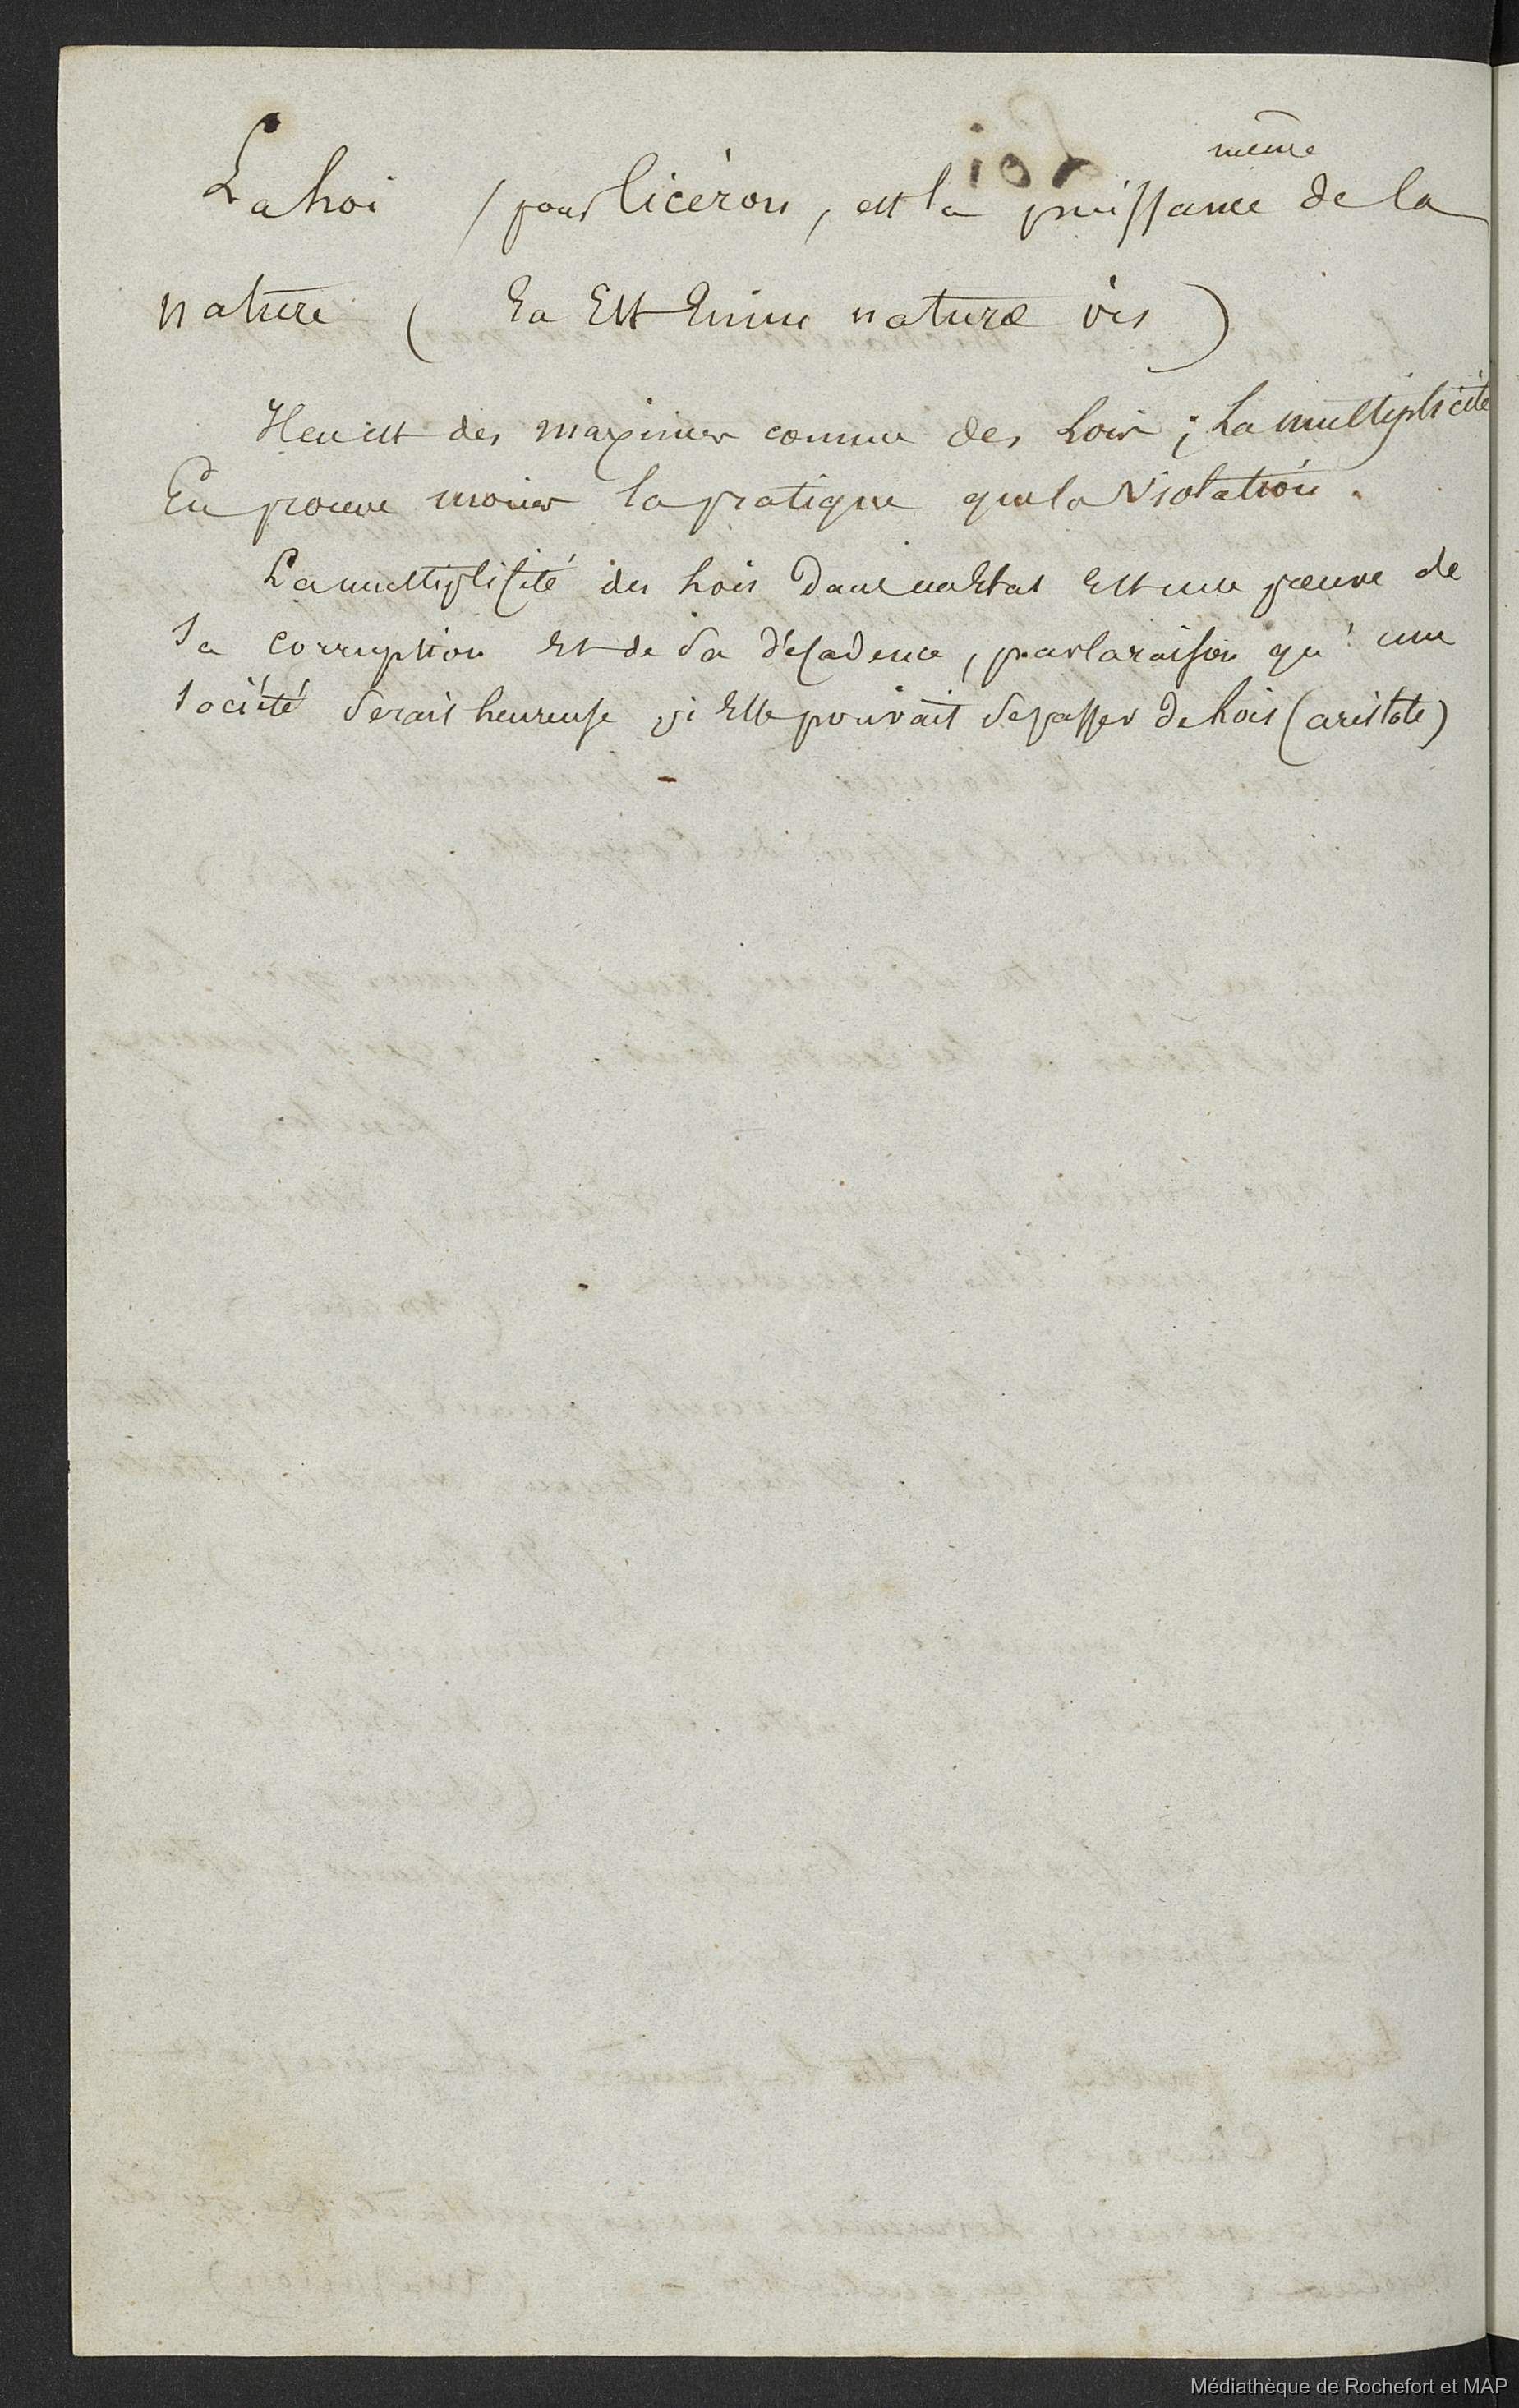 même
La Loi, pour Ciceron, est la puissance de la
nature ( Ea Est Enim naturæ vis )
Il en est des maximes comme des Loix ; La multiplicité
En prouve moins la pratique que la Violation.
La multiplicité des Lois dans un Etat Est une preuve de
sa corruption Et de sa décadence, par la raison qu'une
société serait heureuse si Elle pouvait se passer de Lois (aristote)
Médiathèque de Rochefort et MAP